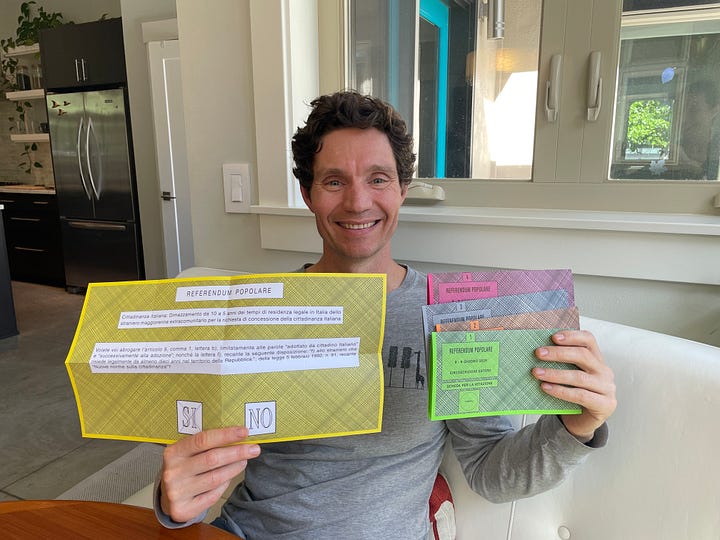 REFERENDUM POPOLARE
Cittadinanza italiana: Dimezzamento da 10 a 5 anni dei tempi di residenza legale in Italia dello
straniero maggiorenne extracomunitario per la richiesta di concessione della cittadinanza italiana
Volete voi abrogare l'articolo 9, comma 1, lettera b), limitatamente alle parole "adottato da cittadino italiano"
e "successivamente alla adozione"; nonché la lettera f), recante la seguente disposizione: "f) allo straniero che
risiede legalmente da almeno dieci anni nel territorio della Repubblica"; della legge 5 febbraio 1992, n. 91, recante
"nuove norme sulla cittadinanza"?
SI
NO
4
REFERENDUM POPOLARE
REFERENDUM POPOLARE
REFERENDUM POPOLARE
1
REFERENDUM POPOLARE
8 - 9 GIUGNO 2025
CIRCOSCRIZIONE ESTERO
SCHEDA PER LA VOTAZIONE